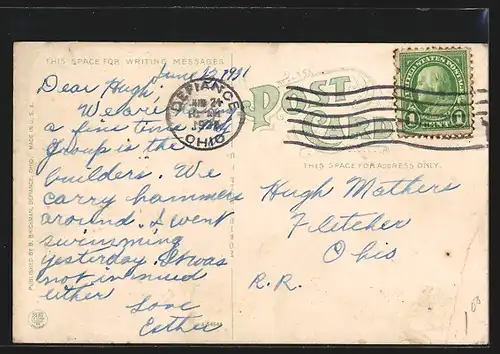 THIS SPACE FOR WRITING MESSAGES
June 12, 1931
Dear Hugh:
We are
a fine time. My
group is the
builders. We
carry hammers
around. I went
swimming
yesterday. It was
not in mud
either
Love
Esther
PUBLISHED BY B. BIRCHMAN, DEFIANCE, OHIO. MADE IN U.S.A.
DEFIANCE
OHIO
POST
CARD
UNITED STATES POSTAGE
1 CENT 1
THIS SPACE FOR ADDRESS ONLY.
Hugh Mathers
Fletcher
Ohio
R.R.